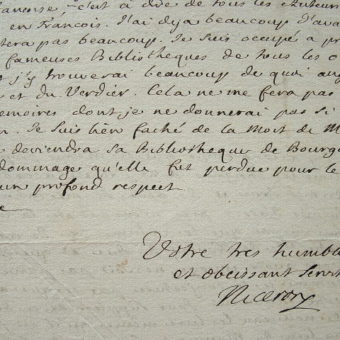 françoise, c'est à dire de tous les Auteurs
en François. J'ai deja beaucoup d'ava
tera pas beaucoup. Je suis occupé a p
fameuses Bibliotheques de tous les o
j'y trouverai beaucoup de quoi aug
et du Verdier. Cela ne me fera pas
emoires dont je ne donnerai pas si
Je suis bien faché de la Mort de M
deviendra sa Bibliotheque de Bourg
dommage qu'elle fut perdue pour le
un profond respect
Votre tres humble
et obeissant Servit
Niceron